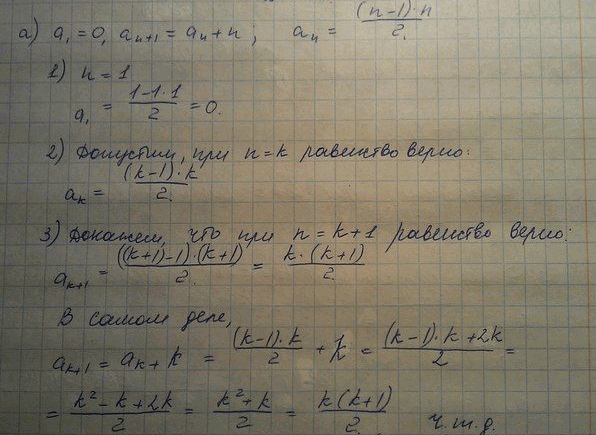 а) a₁ = 0, aₙ₊₁ = aₙ + n ; aₙ = (n-1)·n / 2.
1) n = 1
a₁ = 1-1·1 / 2 = 0.
2) Допустим, при n = k равенство верно:
aₖ = (k-1)·k / 2.
3) Докажем, что при n = k+1 равенство верно:
aₖ₊₁ = ((k+1)-1)·(k+1) / 2. = k·(k+1) / 2.
В самом деле,
aₖ₊₁ = aₖ + k = (k-1)·k / 2 + k = (k-1)·k + 2k / 2 =
= k² - k + 2k / 2 = k² + k / 2 = k(k+1) / 2. ч.т.д.